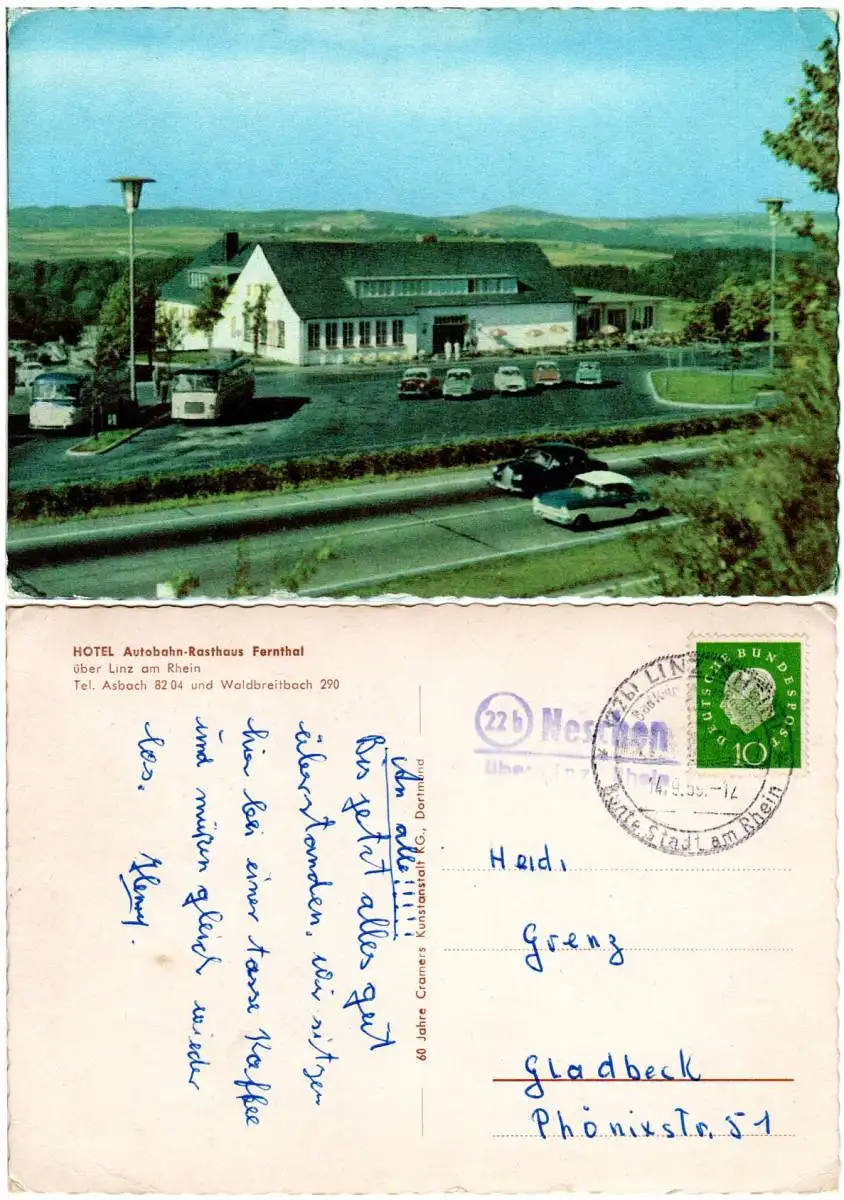 HOTEL Autobahn-Rasthaus Fernthal
über Linz am Rhein
Tel. Asbach 82 04 und Waldbreitbach 290
An alle!!!!!!
Bis jetzt alles gut
überstanden, wir sitzen
hier bei einer tasse Kaffee
und müßen gleich wieder
los.
Henry.
60 Jahre Cramers Kunstanstalt KG., Dortmund
22b Neschen
über Linz Rhein
(22b) LINZ
14.9.59.-12
Bunte Stadt am Rhein
DEUTSCHE BUNDESPOST
10
Heidi
Grenz
Gladbeck
Phönixstr. 51